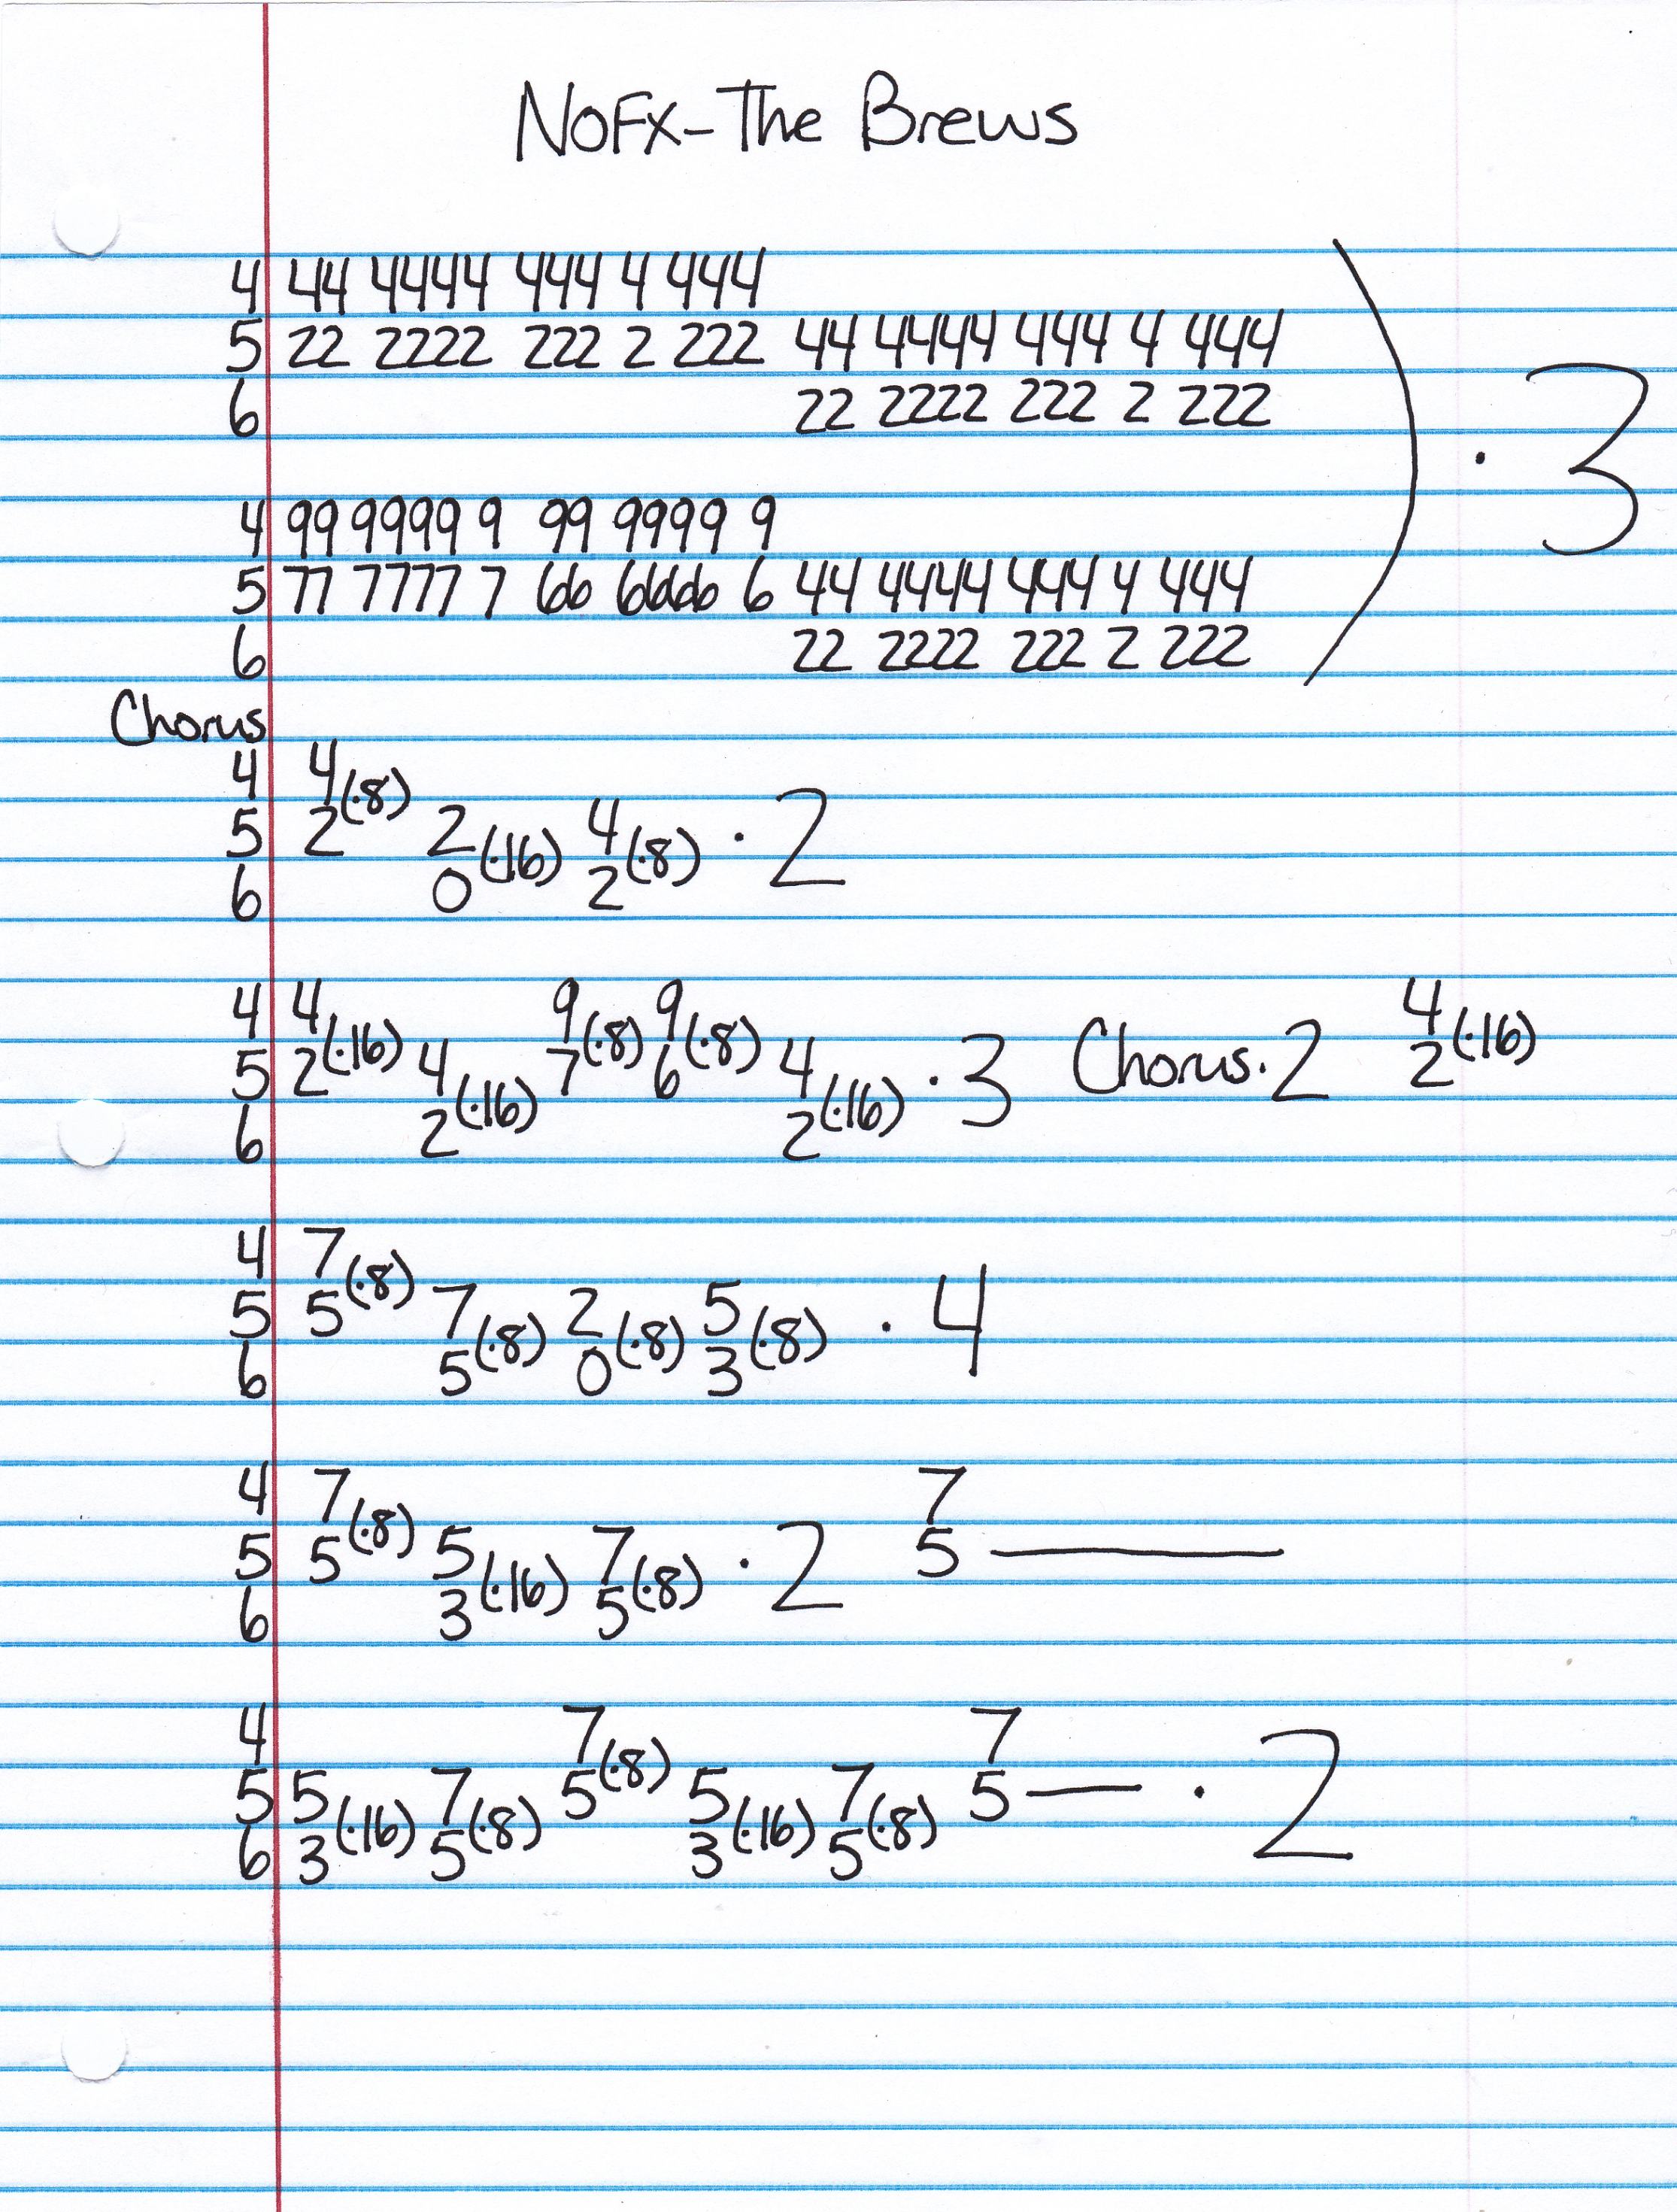 NOFX-The Brews
4 44 4444 444 4 444
5 22 2222 222 2 222 44 4444 444 4 444
6 22 2222 222 2 222
· 3
4 99 9999 9 99 9999 9
5 77 7777 7 66 6666 6 44 4444 444 4 444
6 22 2222 222 2 222
Chorus
4 4
(·8)
5 2 2 4 · 2
(·16) (·8)
6 0 2
4 4 9 9 4
(·16) (·8) (·8) (·16)
5 2 4 7 6 4 · 3 Chorus · 2 2
(·16) (·16)
6 2 2
4 7
(·8)
5 5 7 2 5 · 4
(·8) (·8) (·8)
6 5 0 3
4 7 7
(·8)
5 5 5 7 · 2 5 —
(·16) (·8)
6 3 5
4 7 7
(·8)
5 5 7 5 5 7 5 — · 2
(·16) (·8) (·16) (·8)
6 3 5 3 5